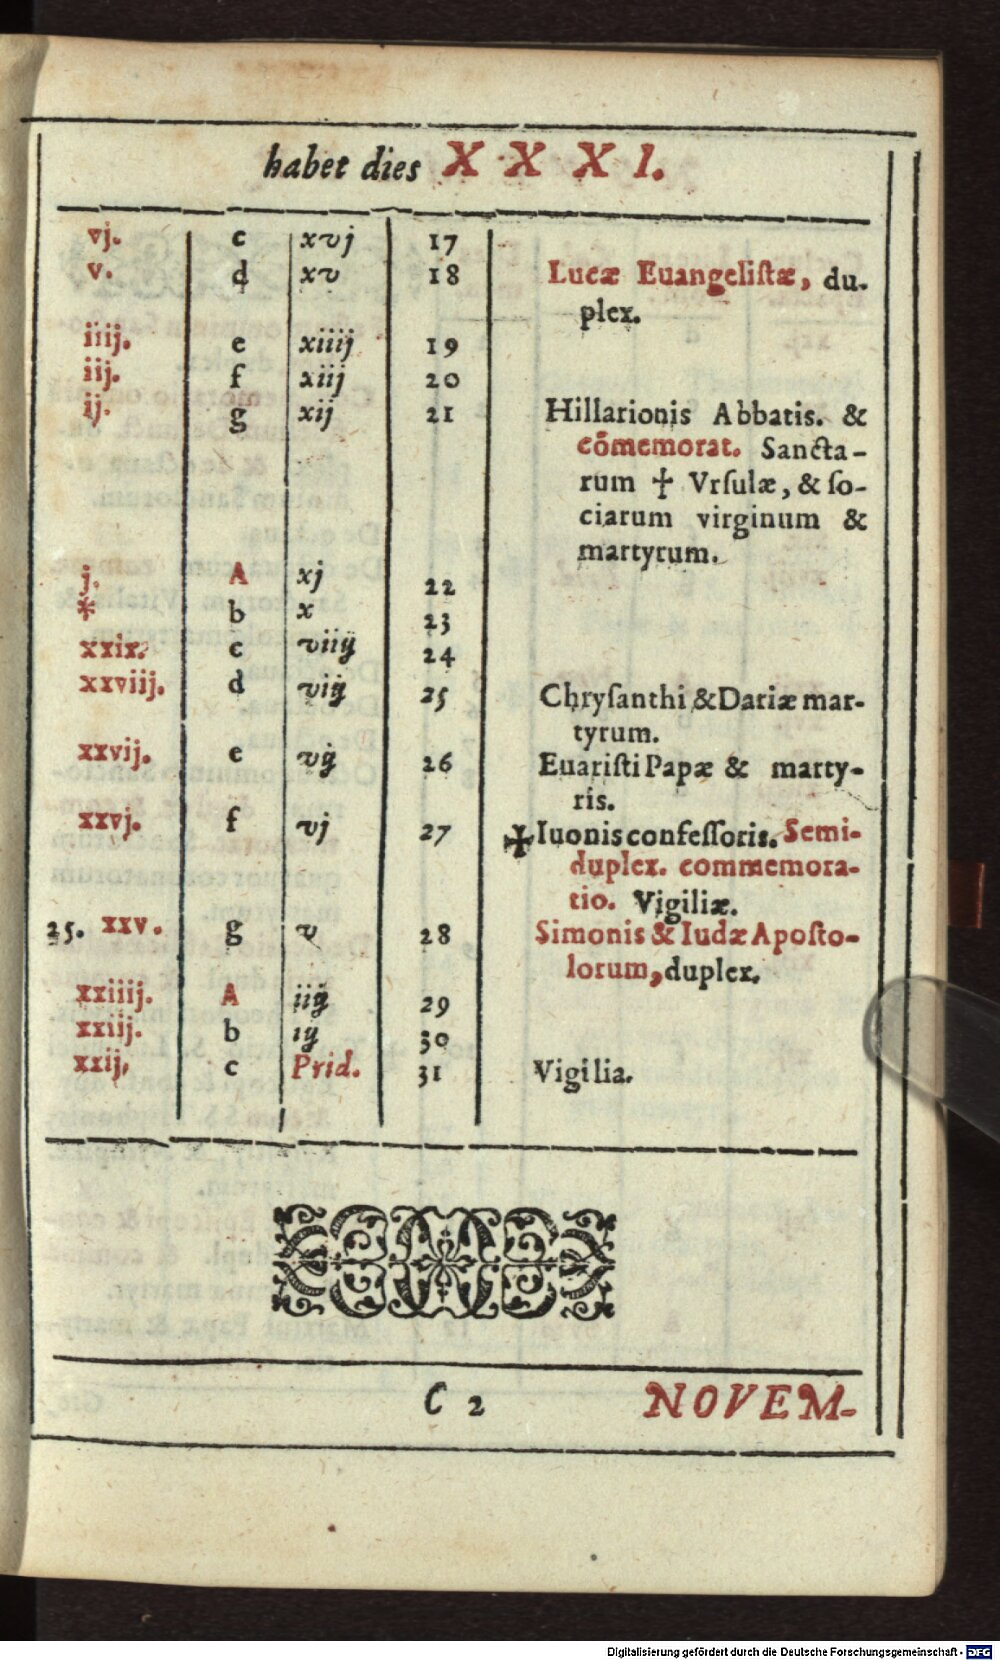 habet dies X X X I.
vj. c xvj 17
v. d xv 18 Lucæ Euangeliſtæ, du-
plex.
iiij. e xiiij 19
iij. f xiij 20
ij. g xij 21 Hillarionis Abbatis. &
cõmemorat. Sancta-
rum ✝ Vrſulæ, & ſo-
ciarum virginum &
martyrum.
j. A xj 22
* b x 23
xxix. c viiij 24
xxviij. d viij 25 Chryſanthi & Dariæ mar-
tyrum.
xxvij. e vij 26 Euariſti Papæ & marty-
ris.
xxvj. f vj 27 ✠ Iuonis confeſſoris. Semi-
duplex. commemora-
tio. Vigiliæ.
25. xxv. g v 28 Simonis & Iudæ Apoſto-
lorum, duplex.
xxiiij. A iiij 29
xxiij. b iij 30
xxij. c Prid. 31 Vigilia.
C 2 NOVEM-
Digitalisierung gefördert durch die Deutsche Forschungsgemeinschaft - DFG